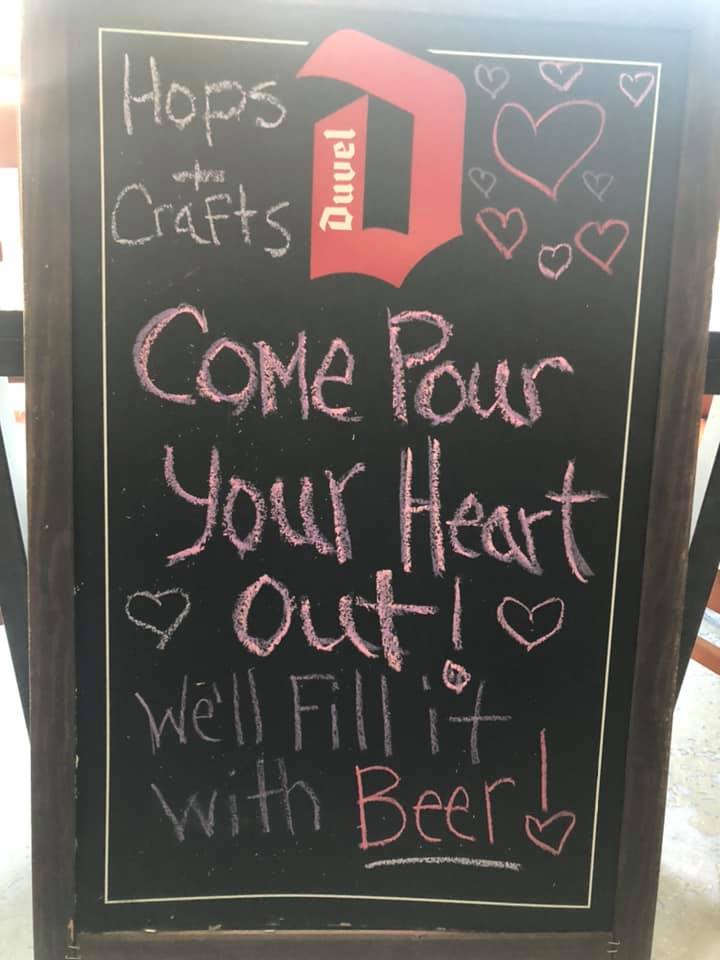 Hops
+
Crafts
Duvel
Come Pour
Your Heart
Out!
We'll Fill it
with Beer!